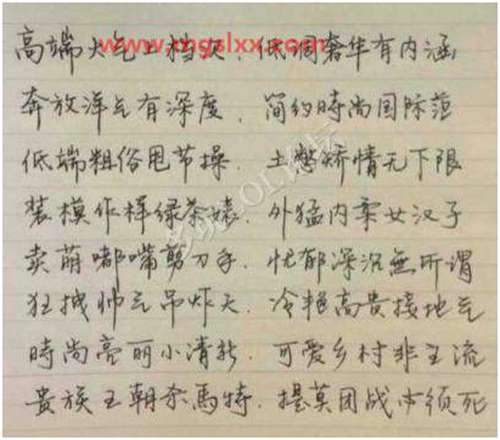 www.mgslxx.com
高端大气上档次，低调奢华有内涵
奔放洋气有深度，简约時尚国际范
低端粗俗甩节操，土憋矫情无下限
装模作样绿茶婊，外猛内柔女汉子
卖萌嘟嘴剪刀手，忧郁深沉無所谓
狂拽帅气吊炸天，冷艳高贵接地气
時尚亮丽小清新，可爱乡村非主流
贵族王朝杀馬特，提莫团战必须死